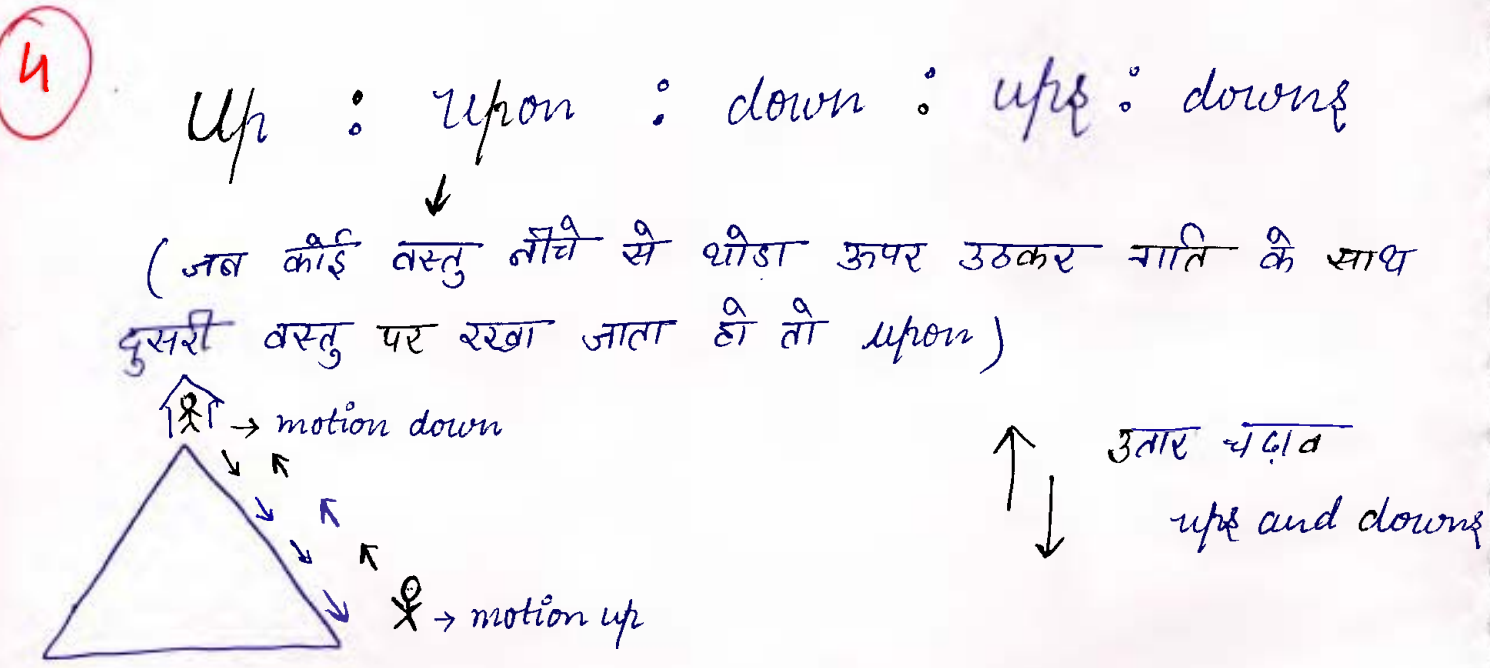 4
Up : upon : down : ups : downs
(जब कोई वस्तु नीचे से थोडा ऊपर उठकर गति के साथ
दुसरी वस्तु पर रखा जाता हो तो upon)
→ motion down
उतार चढ़ाव
ups and downs
→ motion up